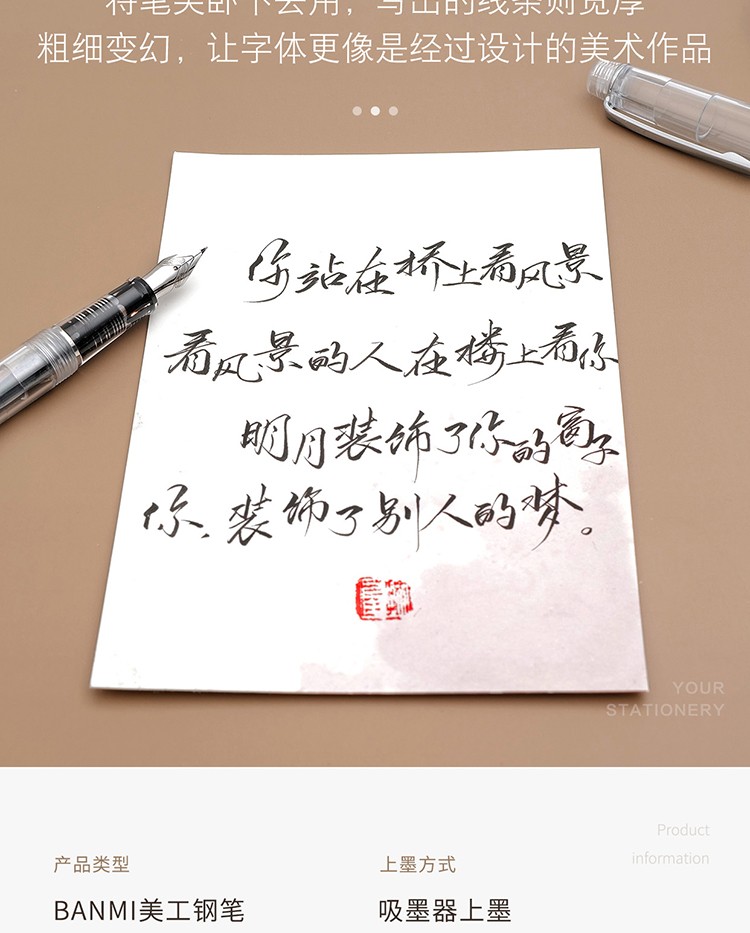 将笔尖卧下去用，写出的线条则宽厚
粗细变幻，让字体更像是经过设计的美术作品
你站在桥上看风景
看风景的人在楼上看你
明月装饰了你的窗子
你装饰了别人的梦。
YOUR
STATIONERY
Product
information
产品类型
上墨方式
BANMI美工钢笔
吸墨器上墨